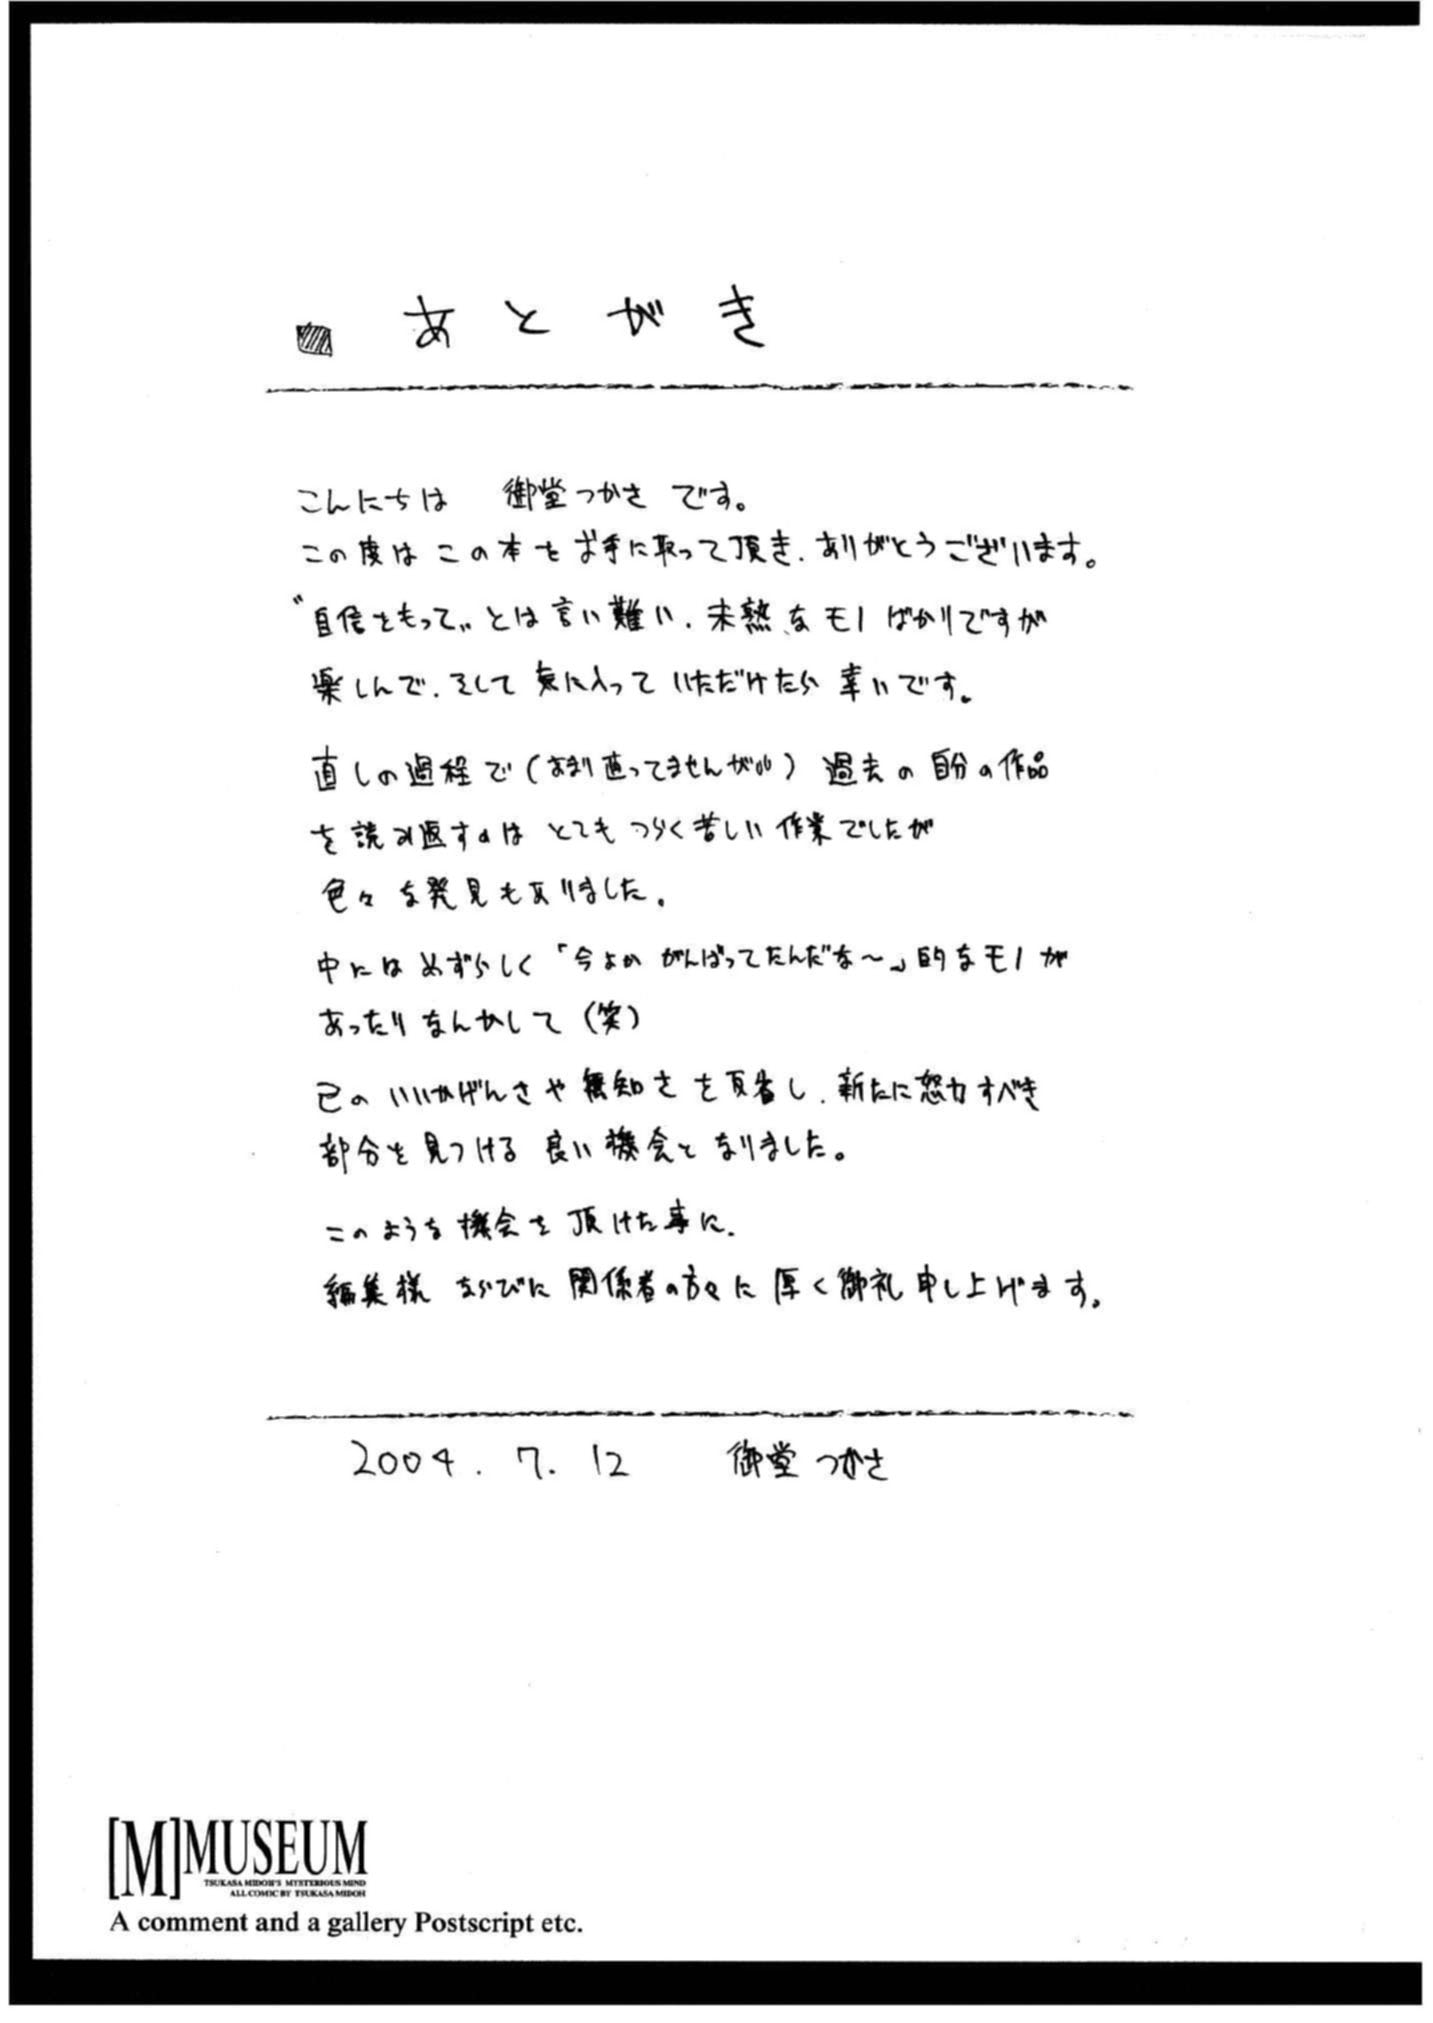 あとがき
こんにちは 御堂つかさ です。
この度は この本を お手に取って頂き、ありがとうございます。
〝自信をもって〟とは言い難い、未熟なモノばかりですが
楽しんで、そして 気に入って いただけたら 幸いです。
直しの過程で(あまり直ってませんが)過去の自分の作品
を読み返すのは とても つらく苦しい作業でしたが
色々な発見もありました。
中には めずらしく「今よか がんばってたんだな〜」的なモノが
あったり なんかして(笑)
己の いいかげんさや無知さを反省し、新たに怒力すべき
部分を見つける 良い機会と なりました。
このような 機会を 頂けた事に、
編集様 ならびに 関係者の方々に 厚く御礼申し上げます。
2004. 7. 12 御堂つかさ
[M]MUSEUM
TSUKASA MIDOH'S MYSTERIOUS MIND
ALL COMIC BY TSUKASA MIDOH
A comment and a gallery Postscript etc.